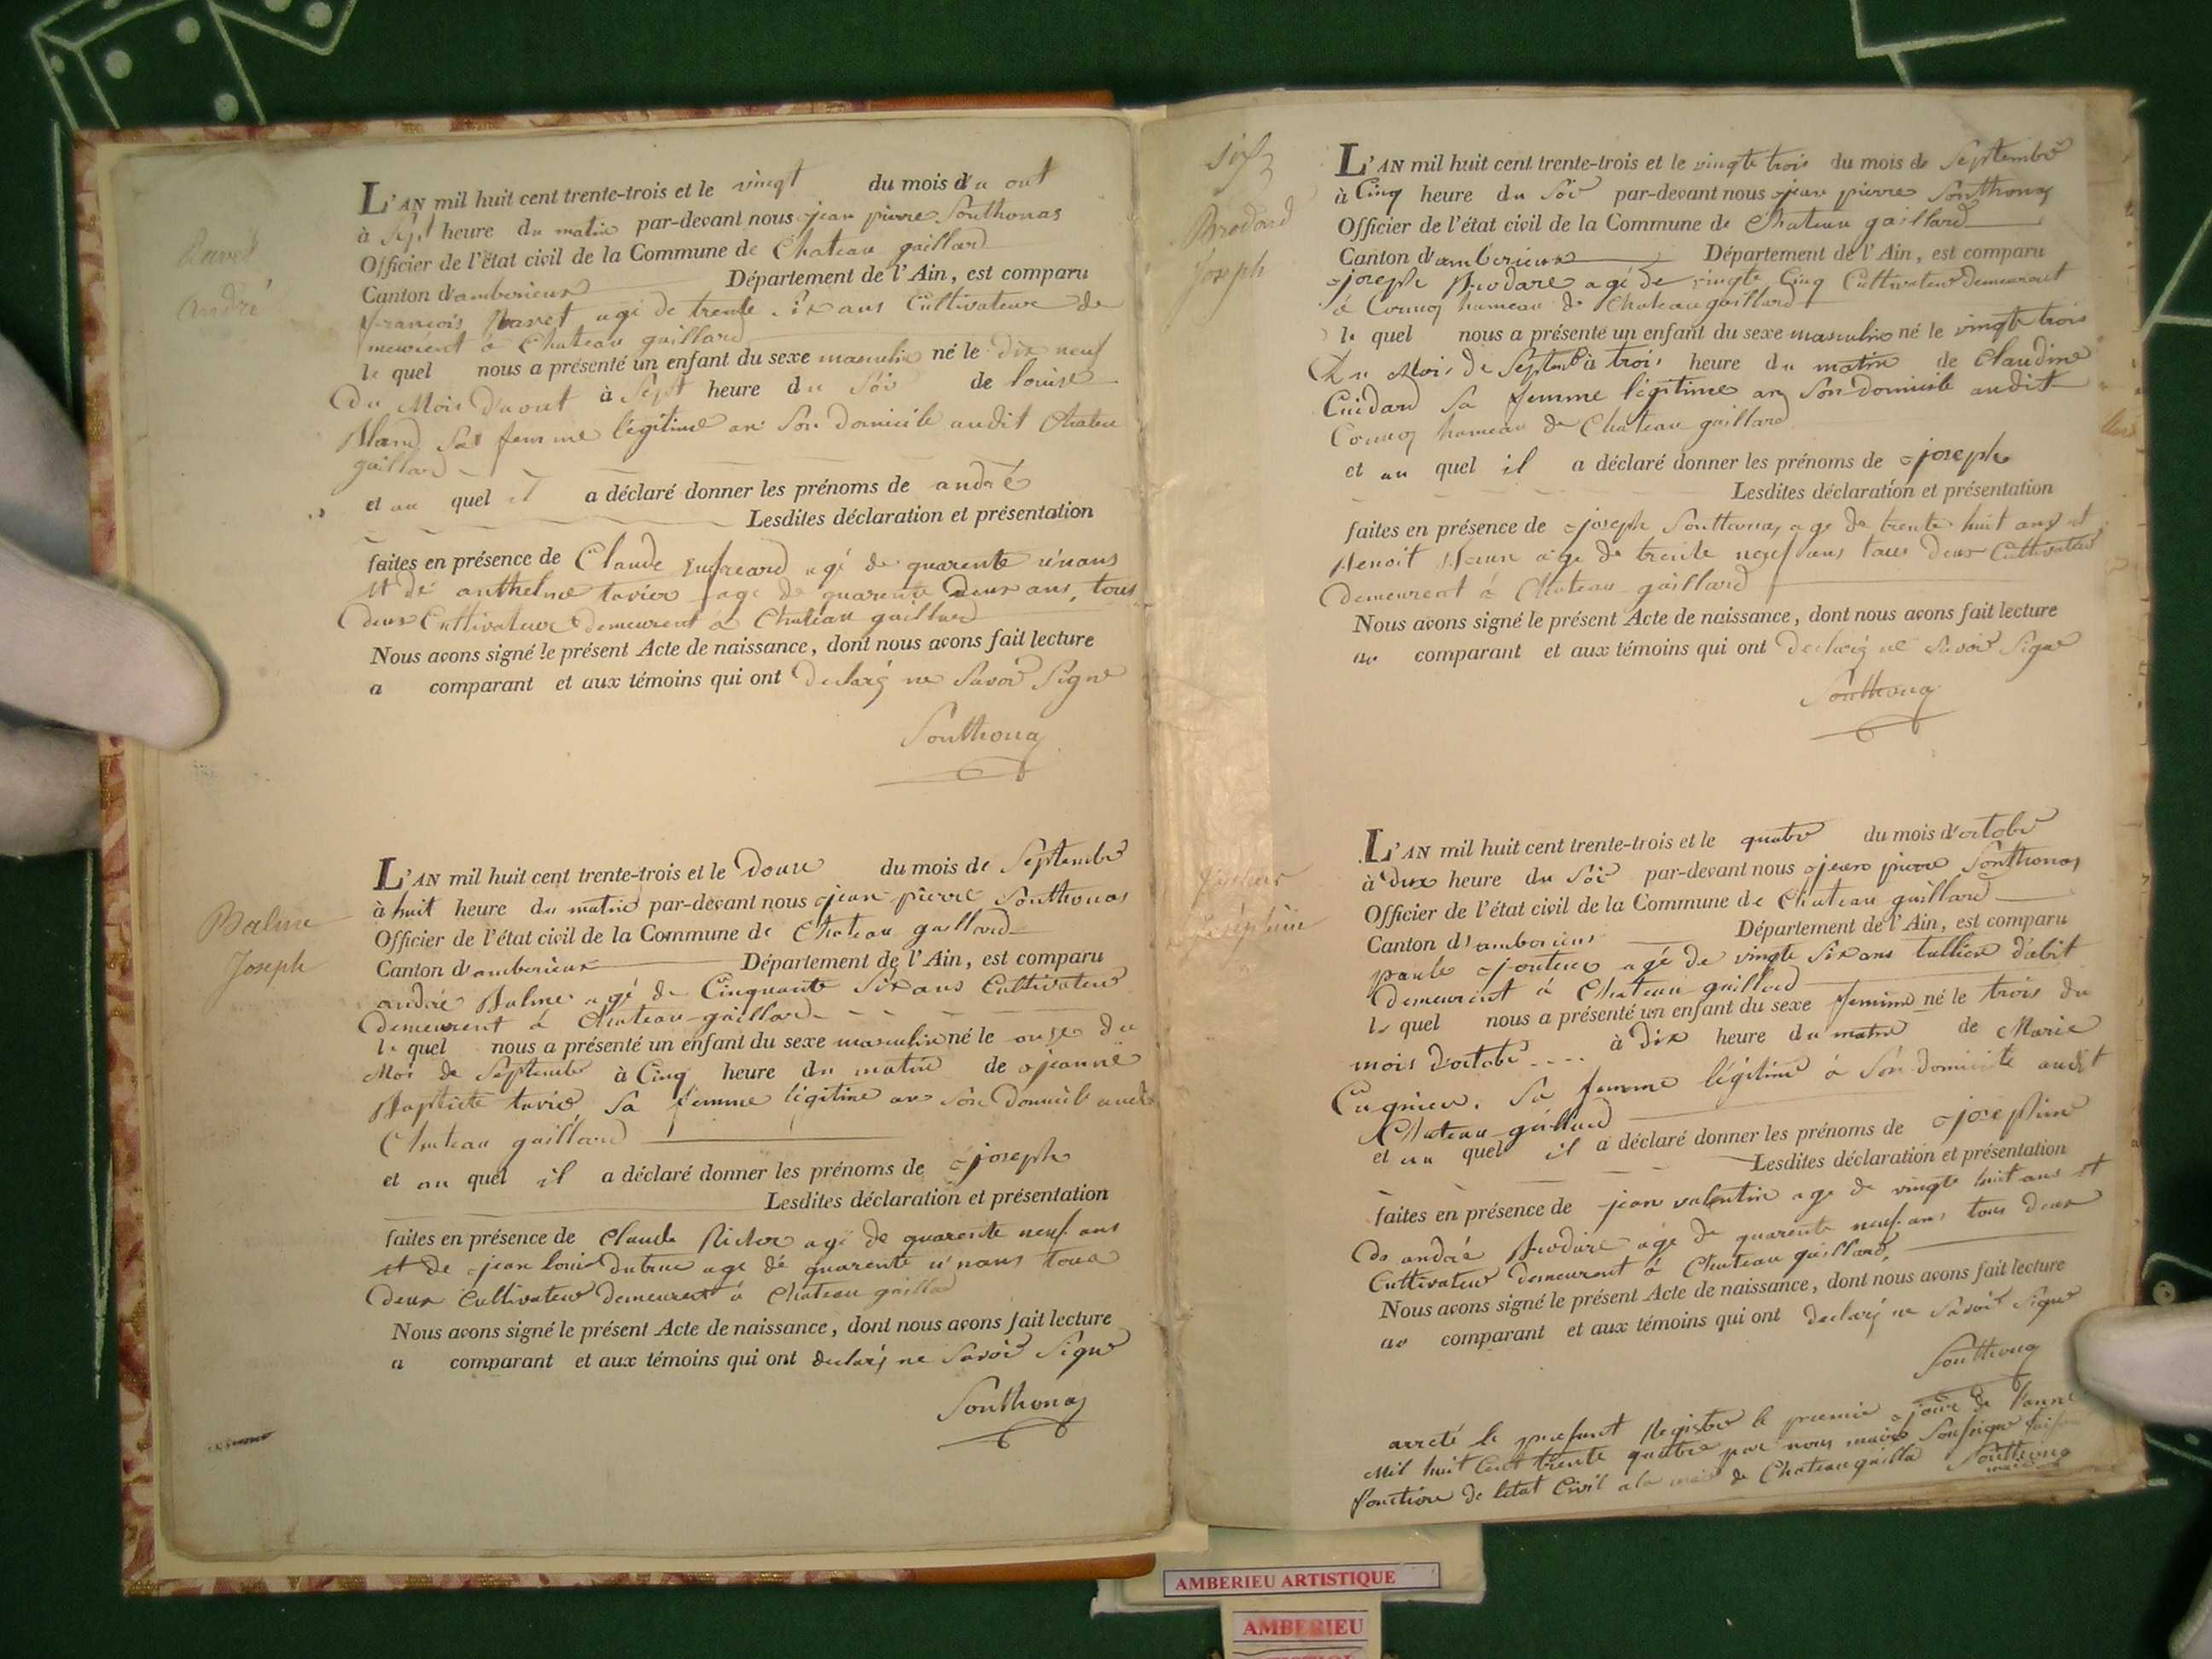 Ravet
André
L'AN mil huit cent trente-trois et le vingt du mois d'a out
à Sept heure du matin par-devant nous jean pierre Sonthonas
Officier de l'état civil de la Commune de Chateau gaillard
Canton d'amberieux Département de l'Ain, est comparu
francois Ravet agé de trente Six ans Cultivateur de
meurent à Chateau gaillard
le quel nous a présenté un enfant du sexe masculin né le dix neuf
Du Mois D'aout à Sept heure du Soir de louise
Sa femme légitime en Son domicile audit Chateau
gaillard
et au quel il a déclaré donner les prénoms de andré
Lesdites déclaration et présentation
faites en présence de Claude agé de quarente unans
et de anthelme tavier age de quarente Deux ans, tous
Deux Cultivateur Demeurent à Chateau gaillard
Nous avons signé le présent Acte de naissance, dont nous avons fait lecture
a comparant et aux témoins qui ont Declaré ne Savoir Signe
Sonthonas
Balme
Joseph
L'AN mil huit cent trente-trois et le Douze du mois de Septembre
à huit heure du matin par-devant nous jean pierre Sonthonas
Officier de l'état civil de la Commune de Chateau gaillard
Canton d'amberieux Département de l'Ain, est comparu
andré Balme agé de Cinquante Six ans Cultivateur
Demeurent à Chateau gaillard
le quel nous a présenté un enfant du sexe masculin né le onze du
Mois de Septembre à Cinq heure du matin de jeanne
Baptiste tavier, Sa femme légitime en Son Domicile audit
Chateau gaillard
et au quel il a déclaré donner les prénoms de joseph
Lesdites déclaration et présentation
faites en présence de Claude agé de quarente neuf ans
et de jean louis Dutruc age dé quarente u'nans tous
Deux Cultivateur Demeurent à Chateau gaillard
Nous avons signé le présent Acte de naissance, dont nous avons fait lecture
a comparant et aux témoins qui ont declaré ne Savoir Signe
Sonthonas
Brodard
Joseph
L'AN mil huit cent trente-trois et le vingte trois du mois de Septembre
à Cinq heure du Soir par-devant nous jean pierre Sonthonas
Officier de l'état civil de la Commune de Chateau gaillard
Canton d'amberieux Département de l'Ain, est comparu
joseph agé de vingte Cinq Cultivateur Demeurant
à hameau de Chateau gaillard
le quel nous a présenté un enfant du sexe masculin né le vingte trois
Du Mois de Septembre à trois heure du matin de Claudine
Sa femme légitime en Son domicile audit
hameau de Chateau gaillard
et au quel il a déclaré donner les prénoms de joseph
Lesdites déclaration et présentation
faites en présence de joseph Sonthonas, age de trente huit ans et
Benoit age de trente neuf ans tous Deux Cultivateur
Demeurent à Chateau gaillard
Nous avons signé le présent Acte de naissance, dont nous avons fait lecture
au comparant et aux témoins qui ont Declaré ne Savoir Signe
Sonthonas
Joséphine
L'AN mil huit cent trente-trois et le quatre du mois d'octobre
à Dix heure du Soir par-devant nous jean pierre Sonthonas
Officier de l'état civil de la Commune de Chateau gaillard
Canton d'amberieux Département de l'Ain, est comparu
agé de vingte Six ans tallieur d'abit
Demeurent à Chateau gaillard
le quel nous a présenté un enfant du sexe feminin né le trois du
mois d'octobre à Dix heure du matin de Marie
Sa femme légitime à Son domicile audit
Chateau gaillard
et au quel il a déclaré donner les prénoms de josephine
Lesdites déclaration et présentation
faites en présence de jean valentin age de vingte huit ans et
De andré agé de quarente neuf ans tous Deux
Cultivateur Demeurent à Chateau gaillard,
Nous avons signé le présent Acte de naissance, dont nous avons fait lecture
au comparant et aux témoins qui ont declaré ne Savoir Signe
Sonthonas
arreté le present Registre le premier jour de l'anné
Mil huit Cent trente quatre par nous maire Sousigné
fonction de letat Civil a la de Chateau gailla Sonthonas
maire
AMBERIEU ARTISTIQUE
AMBERIEU